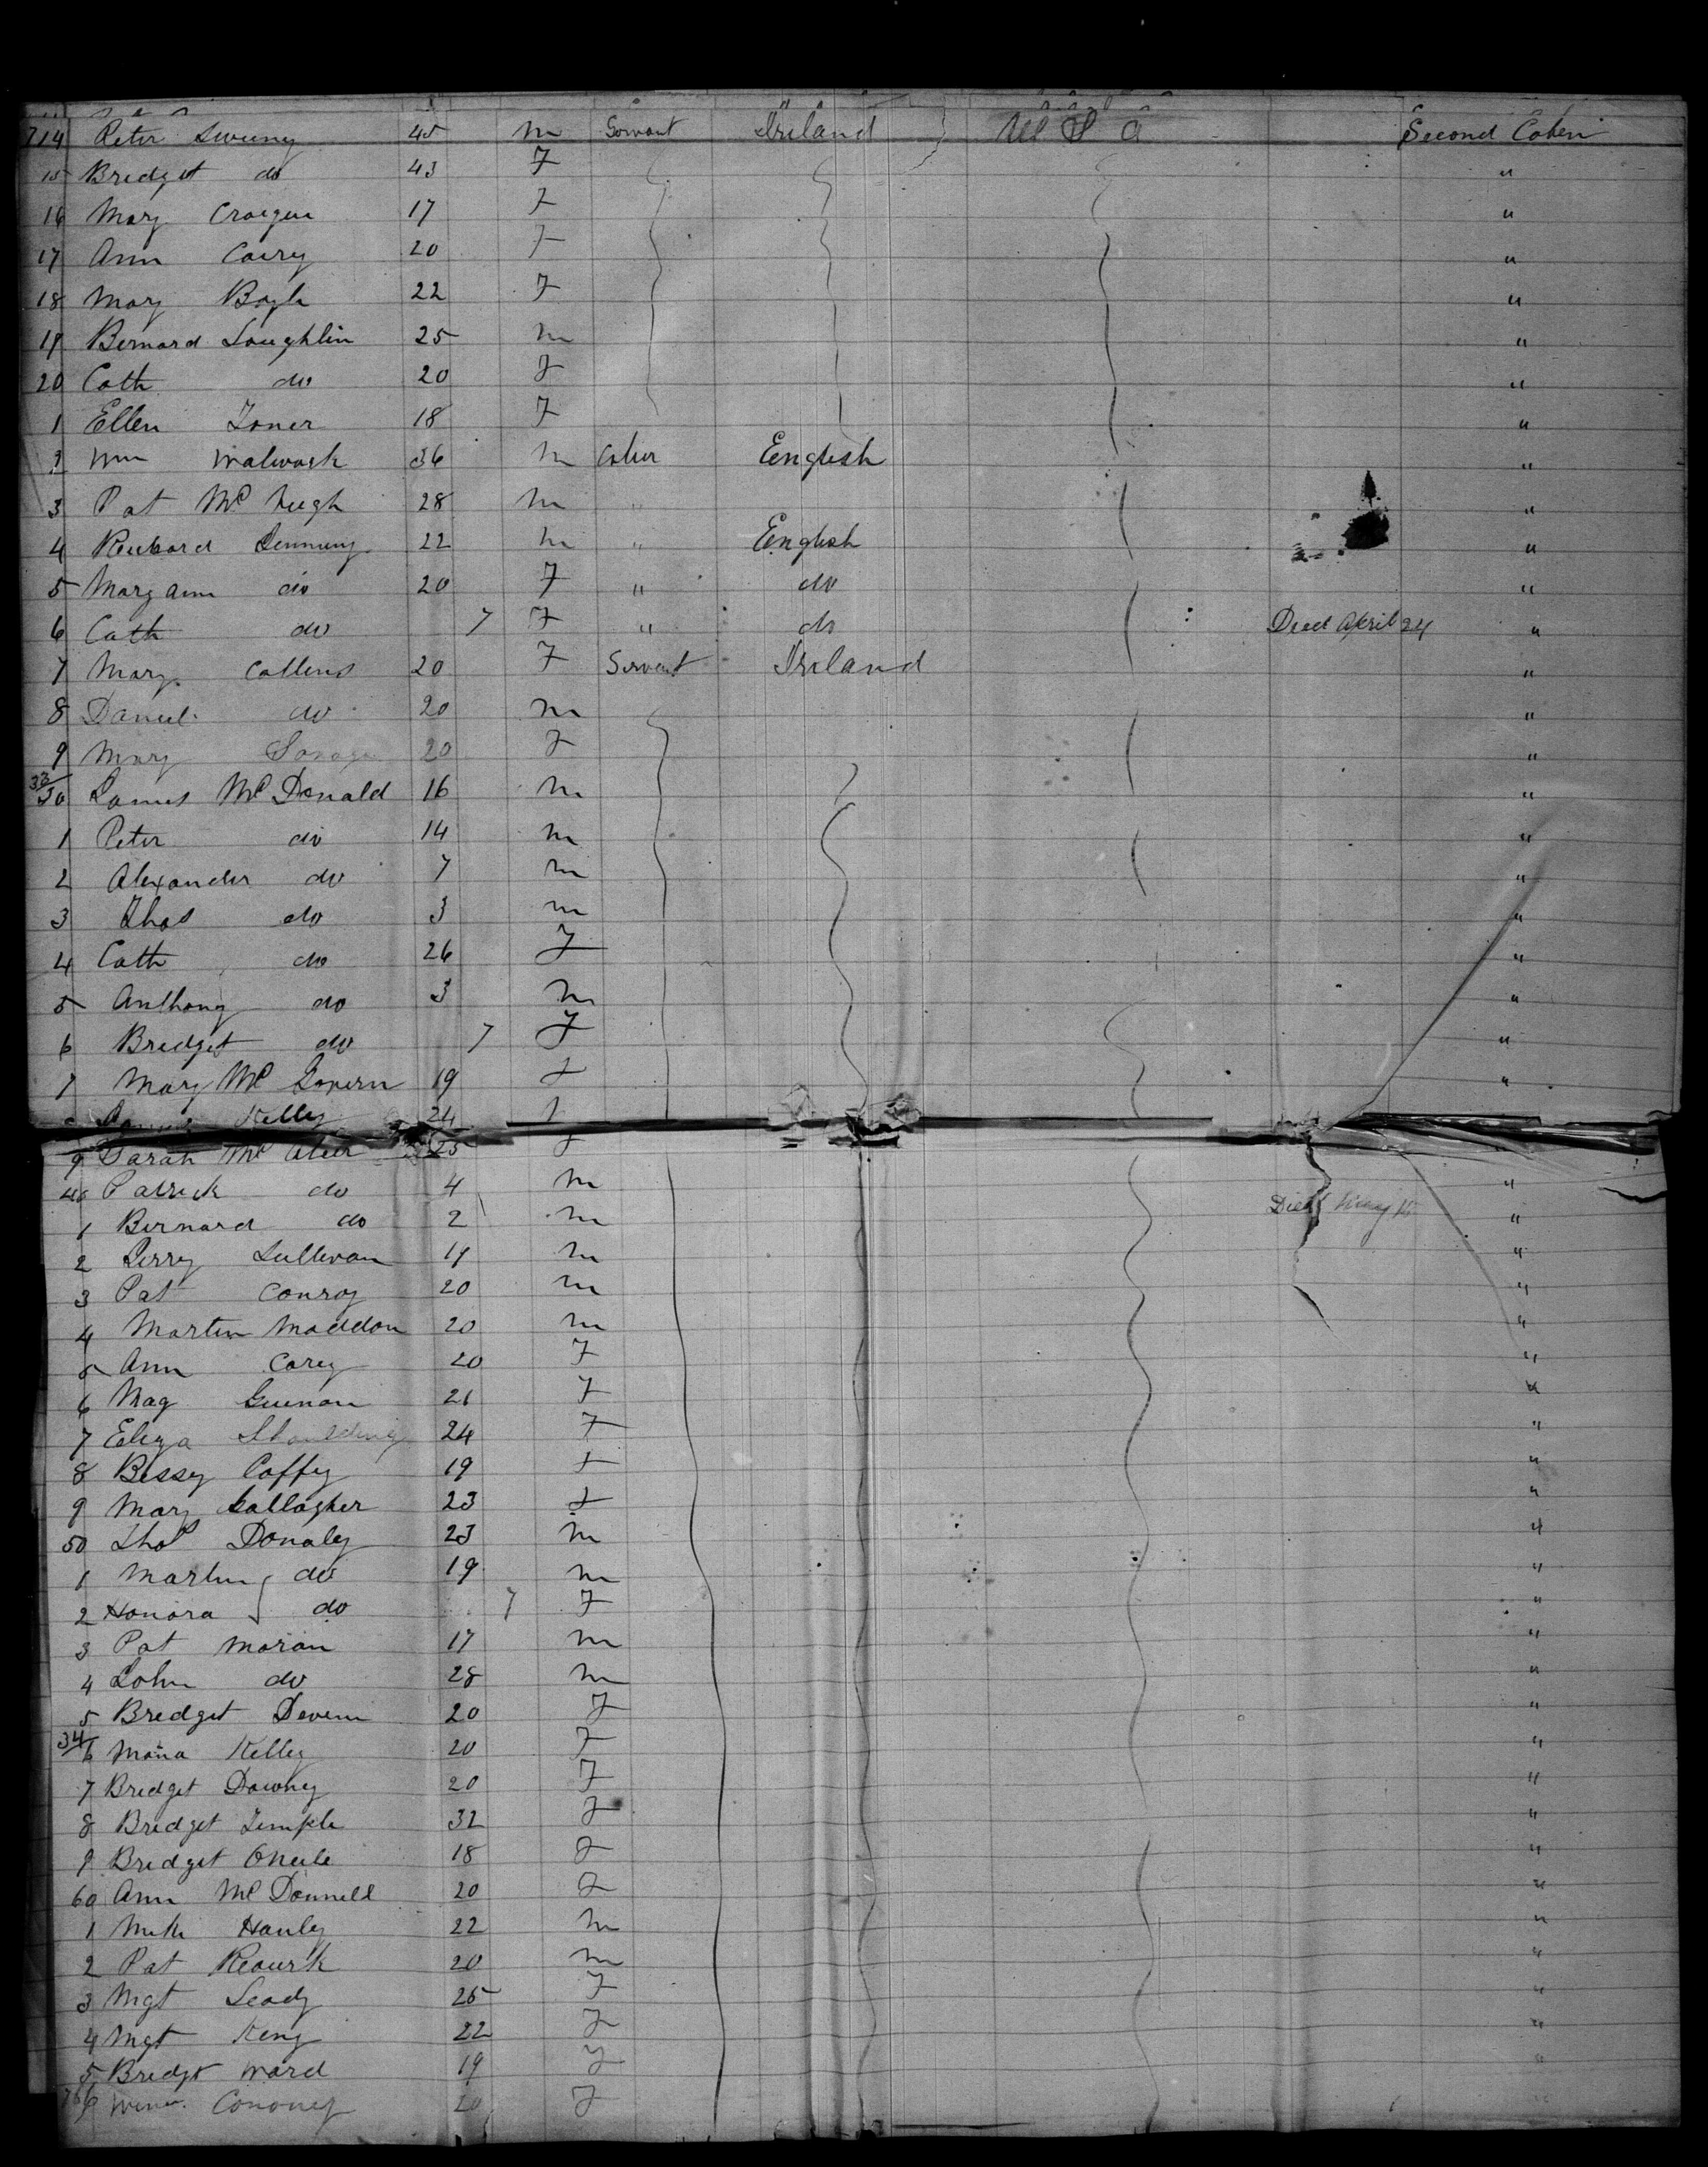 714 Peter Sweeny 45 m Servant Ireland U S A Second Cabin
15 Bridget do 43 F "
16 Mary 17 F "
17 Ann Carey 20 F "
18 Mary Boyle 22 F "
19 Bernard Loughlin 25 m "
20 Cath do 20 F "
1 Ellen Toner 18 F "
2 Wm Malwork 36 m English "
3 Pat McHugh 28 m " "
4 22 m " English "
5 Mary ann do 20 F " do "
6 Cath do 7 F " do Died April 24 "
7 Mary Collins 20 F Servant Ireland "
8 Daniel do 20 m "
9 Mary Savage 20 F "
33/30 James McDonald 16 m "
1 Peter do 14 m "
2 Alexander do 7 m "
3 Thos do 3 m "
4 Cath do 26 F "
5 Anthony do 3 m "
6 Bridget do 7 F "
7 Mary McGovern 19 F "
Kelly 24
9 Sarah Mc 25 F
40 Patrick do 4 m "
1 Bernard do 2 m Died May "
2 Jerry Sullivan 19 m "
3 Pat Conroy 20 m "
4 Martin Maddon 20 m "
5 Ann Carey 20 F "
6 Mag 21 F "
7 Eliza 24 F "
8 Bessy Coffey 19 F "
9 Mary Gallagher 23 F "
50 Thos Donaly 23 m "
1 Martin do 19 m "
2 Honora do 7 F "
3 Pat Moran 17 m "
4 John do 28 m "
5 Bridget 20 F "
34/6 Kelly 20 F "
7 Bridget Downey 20 F "
8 Bridget Temple 32 F "
9 Bridget ONeile 18 F "
60 Ann McDonnell 20 F "
1 Hanley 22 m "
2 Pat Rourk 20 m "
3 Mgt 25 F "
4 Mgt King 22 F "
5 Bridgt Ward 19 F
766 20 F